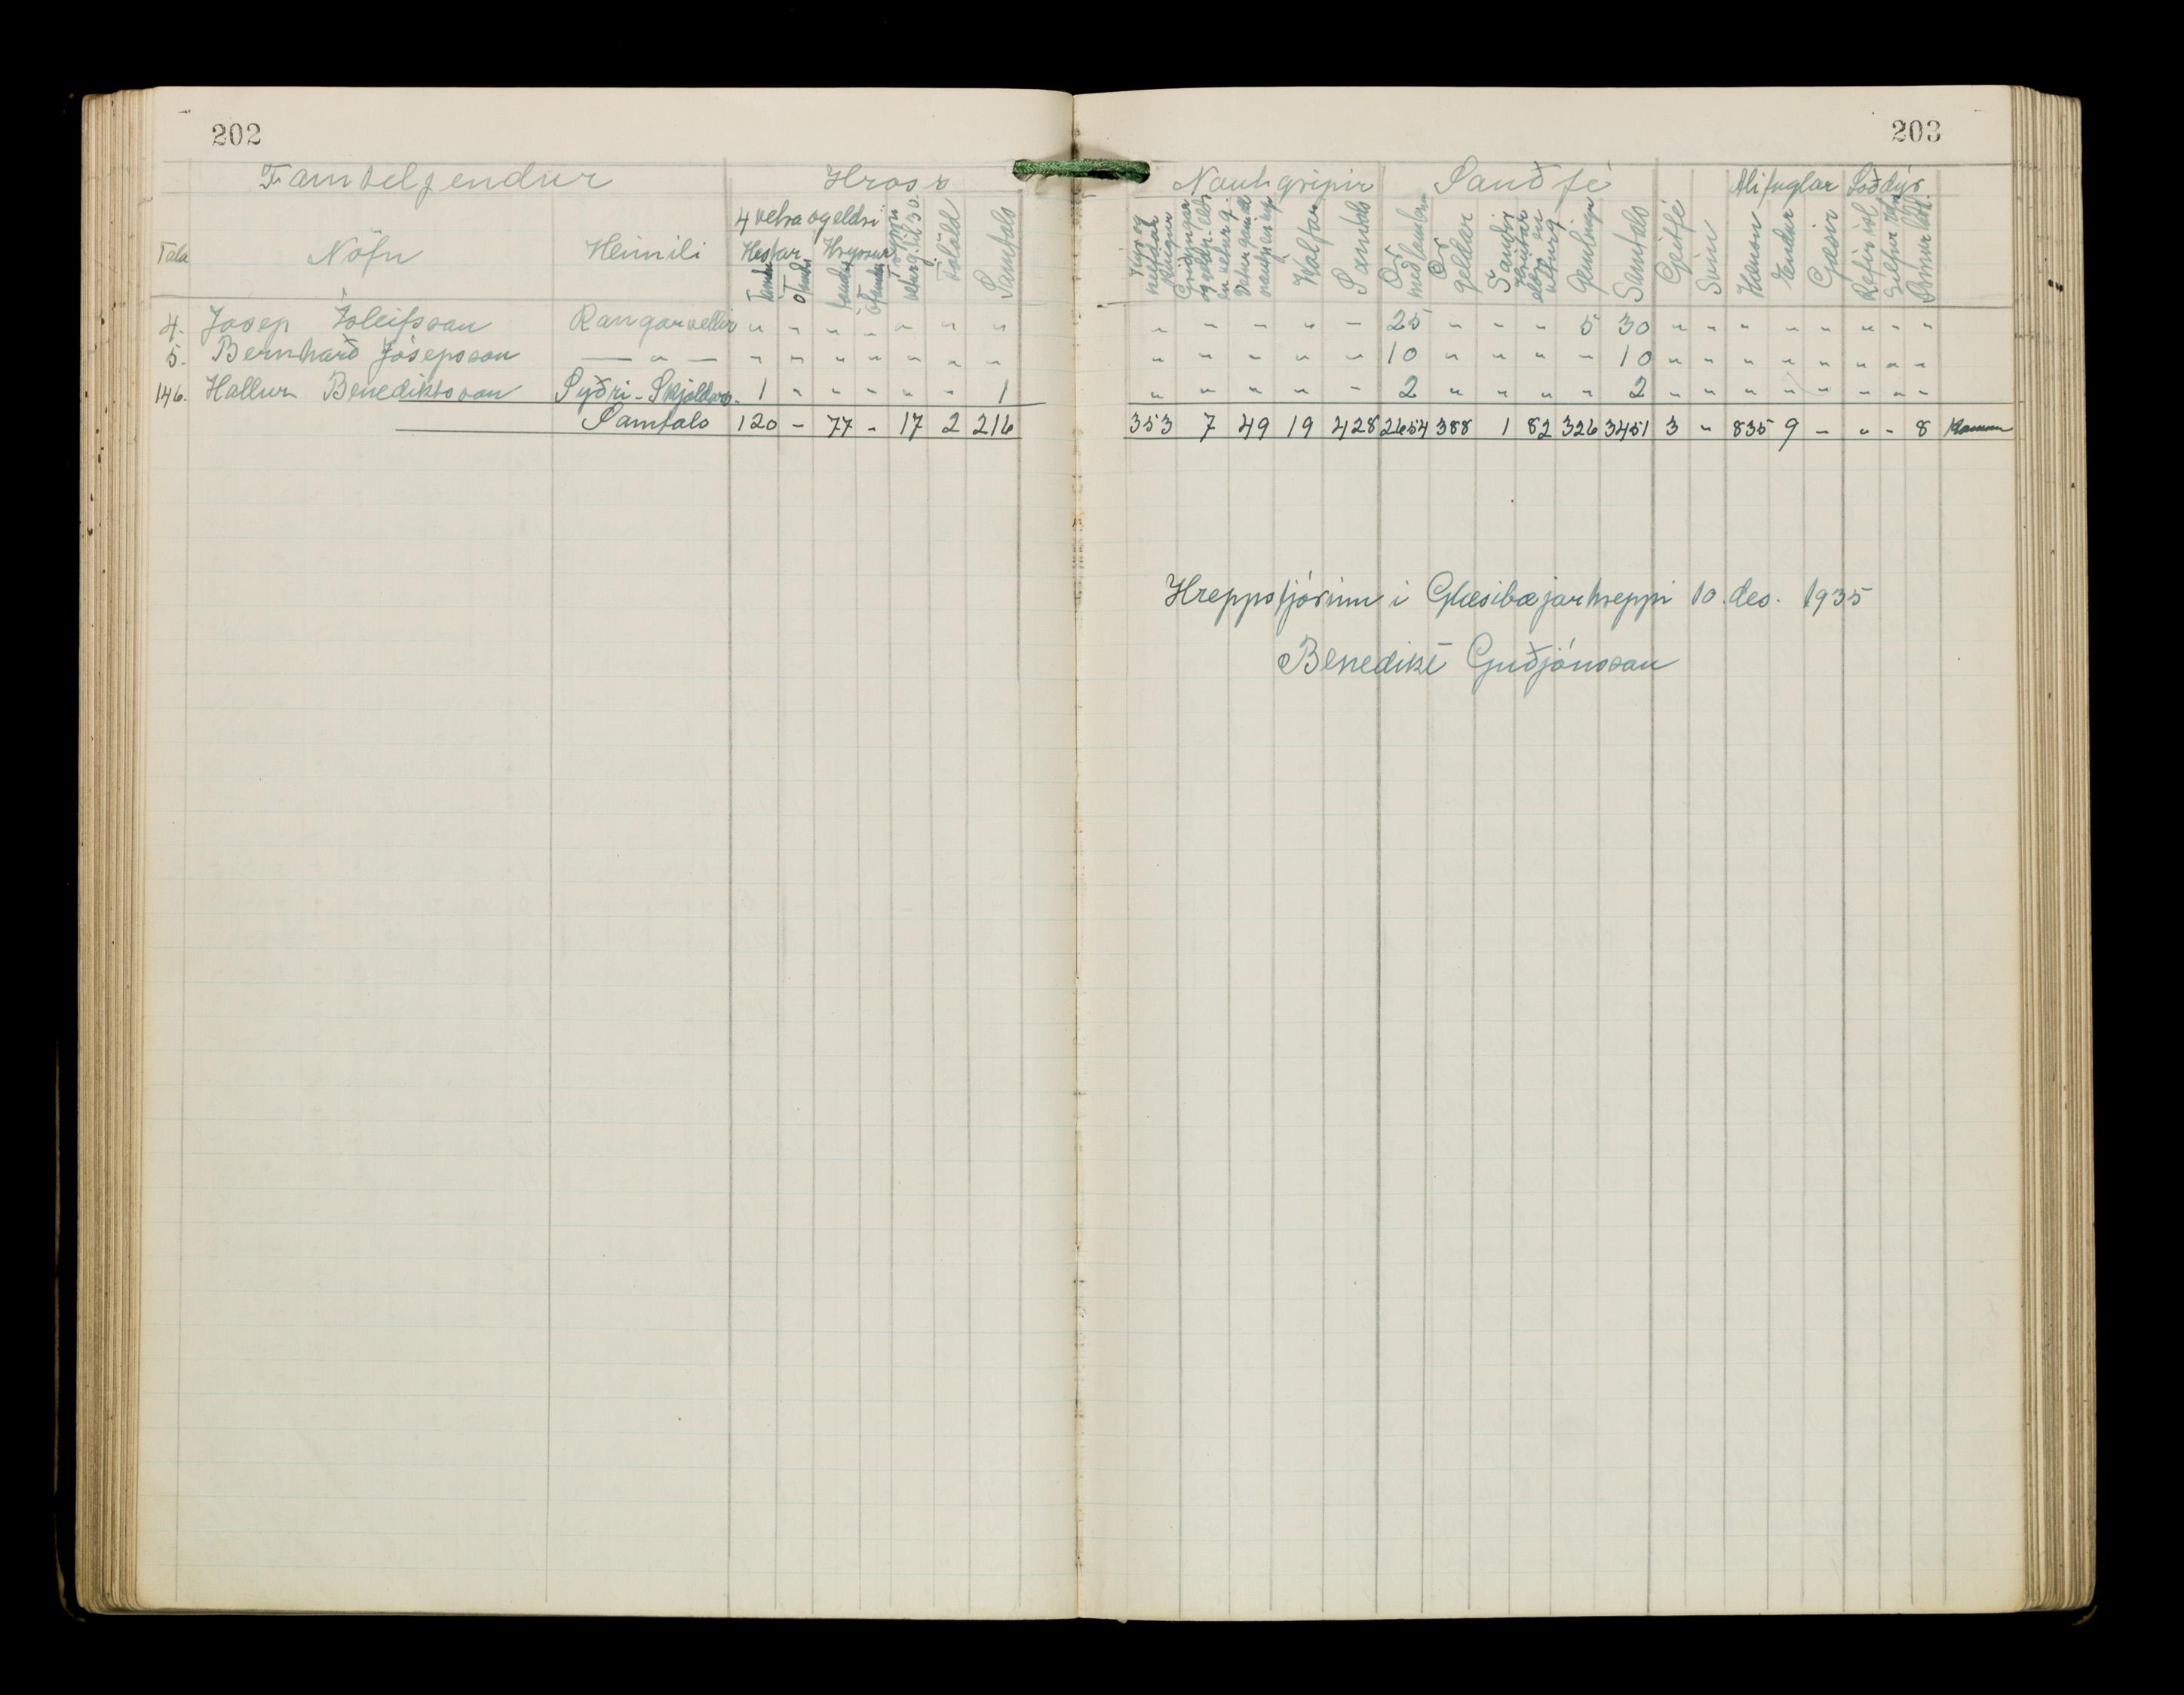 202
Framteljendur Hross
4 vetra og eldri
Tala Nöfn Heimili Hestar Hryssur
Tamdir Ótamdir Tamdar Ótamdar Folöld Samtals
4. Jósep Ísleifsson Rangárvellir " " " " " " "
5. Bernharð Jósepsson — " — " " " " " " "
146. Hallur Benediktsson Syðri-Skjaldarv. 1 " " " " " 1
Samtals 120 - 77 - 17 2 216
203
Nautgripir Sauðfé Alifuglar Loðdýr
Kýr og Kálfar Samtals Ær með lömbum Ær geldar Sauðir Gemlingar Samtals Geitfé Svín Hænsn Endur Gæsir Refir ísl.
" " " " " 25 " " " 5 30 " " " " " " " "
" " " " " 10 " " " " 10 " " " " " " " "
" " " " " 2 " " " " 2 " " " " " " " "
353 7 49 19 428 2654 388 1 82 326 3451 3 " 835 9 - " - 8
Hreppstjórinn í Glæsibæjarhreppi 10. des. 1935
Benedikt Guðjónsson